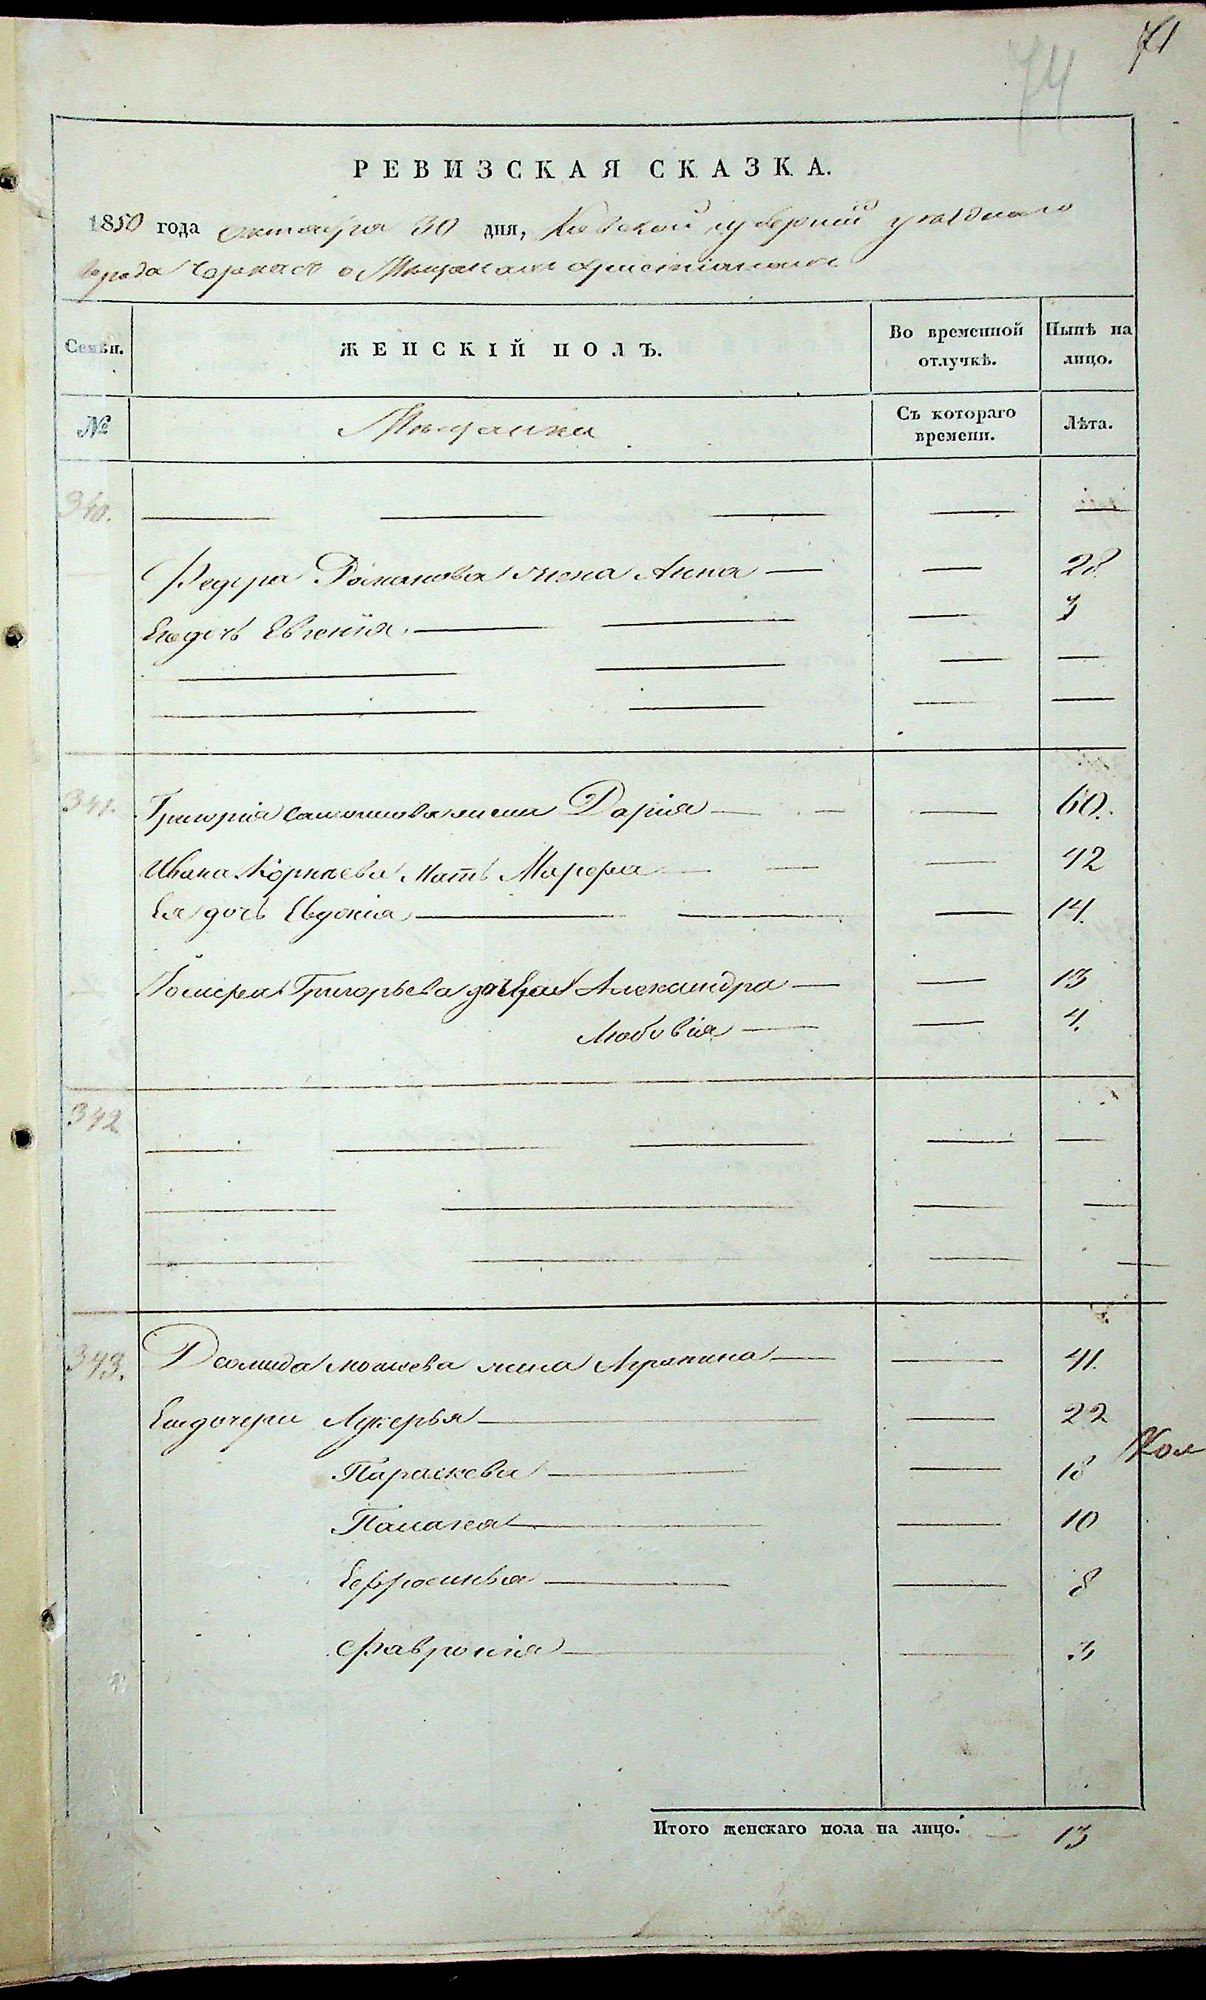 71
74
РЕВИЗСКАЯ СКАЗКА.
1850 года октября 30 дня, Киевской губернии уезднаго
города Черкас о Мещанах христианах
Семьи. ЖЕНСКІЙ ПОЛЪ. Во временной отлучкѣ. Нынѣ на лицо.
№ Мещанки Съ котораго времени. Лѣта.
340.
Федора Романова жена Анна — — 28
Ея дочь Евгенія — — 3
341.
Григорія жена Дарія — — 60.
Ивана Корнѣева мать Марфа — — 42
Ея дочь Евдокія — — 14.
Григорьева дочери Александра — — 13
Любовія — — 4.
342
343. Деомида жена Агрипина — — 41.
Ея дочери Лукерья — — 22
Параскева — — 18
Палажка — — 10
Ефросинья — — 8
Февронія — — 3
Итого женскаго пола на лицо. — 13